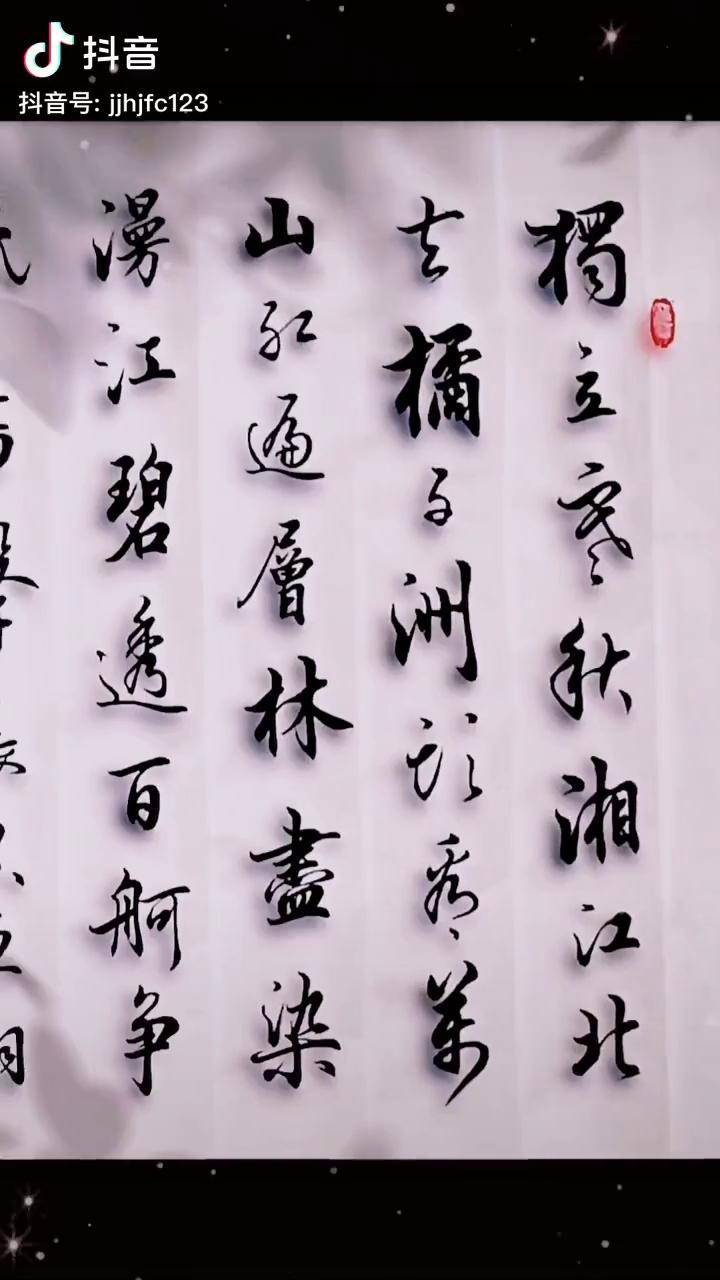 抖音
抖音号: jjhjfc123
獨立寒秋湘江北
去橘子洲頭看萬
山紅遍層林盡染
漫江碧透百舸争